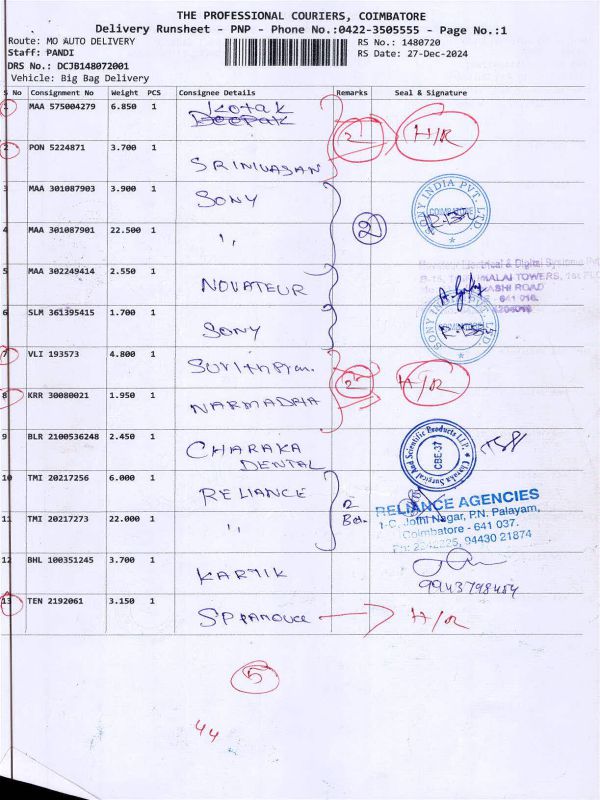 THE PROFESSIONAL COURIERS, COIMBATORE
Delivery Runsheet - PNP - Phone No.:0422-3505555 - Page No.:1
Route: MO AUTO DELIVERY RS No.: 1480720
Staff: PANDI RS Date: 27-Dec-2024
DRS No.: DCJB148072001
Vehicle: Big Bag Delivery
S No Consignment No Weight PCS Consignee Details Remarks Seal & Signature
1 MAA 575004279 6.850 1 Kotak 2 H/R
Deepak
2 PON 5224871 3.700 1
SRINIVASAN
3 MAA 301087903 3.900 1 SONY
SONY INDIA PVT. LTD.
COIMBATORE
4 MAA 301087901 22.500 1 " 2
5 MAA 302249414 2.550 1 NOVATEUR
Electrical & Digital Systems
MALAI TOWERS, 1st
ROAD
641 018.
6 SLM 361395415 1.700 1 SONY
SONY INDIA PVT. LTD.
7 VLI 193573 4.800 1
2 H/R
8 KRR 30080021 1.950 1 NARMADHA
9 BLR 2100536248 2.450 1 CHARAKA
DENTAL
Charaka Surgical And Scientific Products LLP.
CBE-37
10 TMI 20217256 6.000 1 RELIANCE 2
RELIANCE AGENCIES
1-C, Jothi Nagar, P.N. Palayam,
Coimbatore - 641 037.
11 TMI 20217273 22.000 1 "
94430 21874
12 BHL 100351245 3.700 1 KARTIK
13 TEN 2192061 3.150 1 H/R
5
44